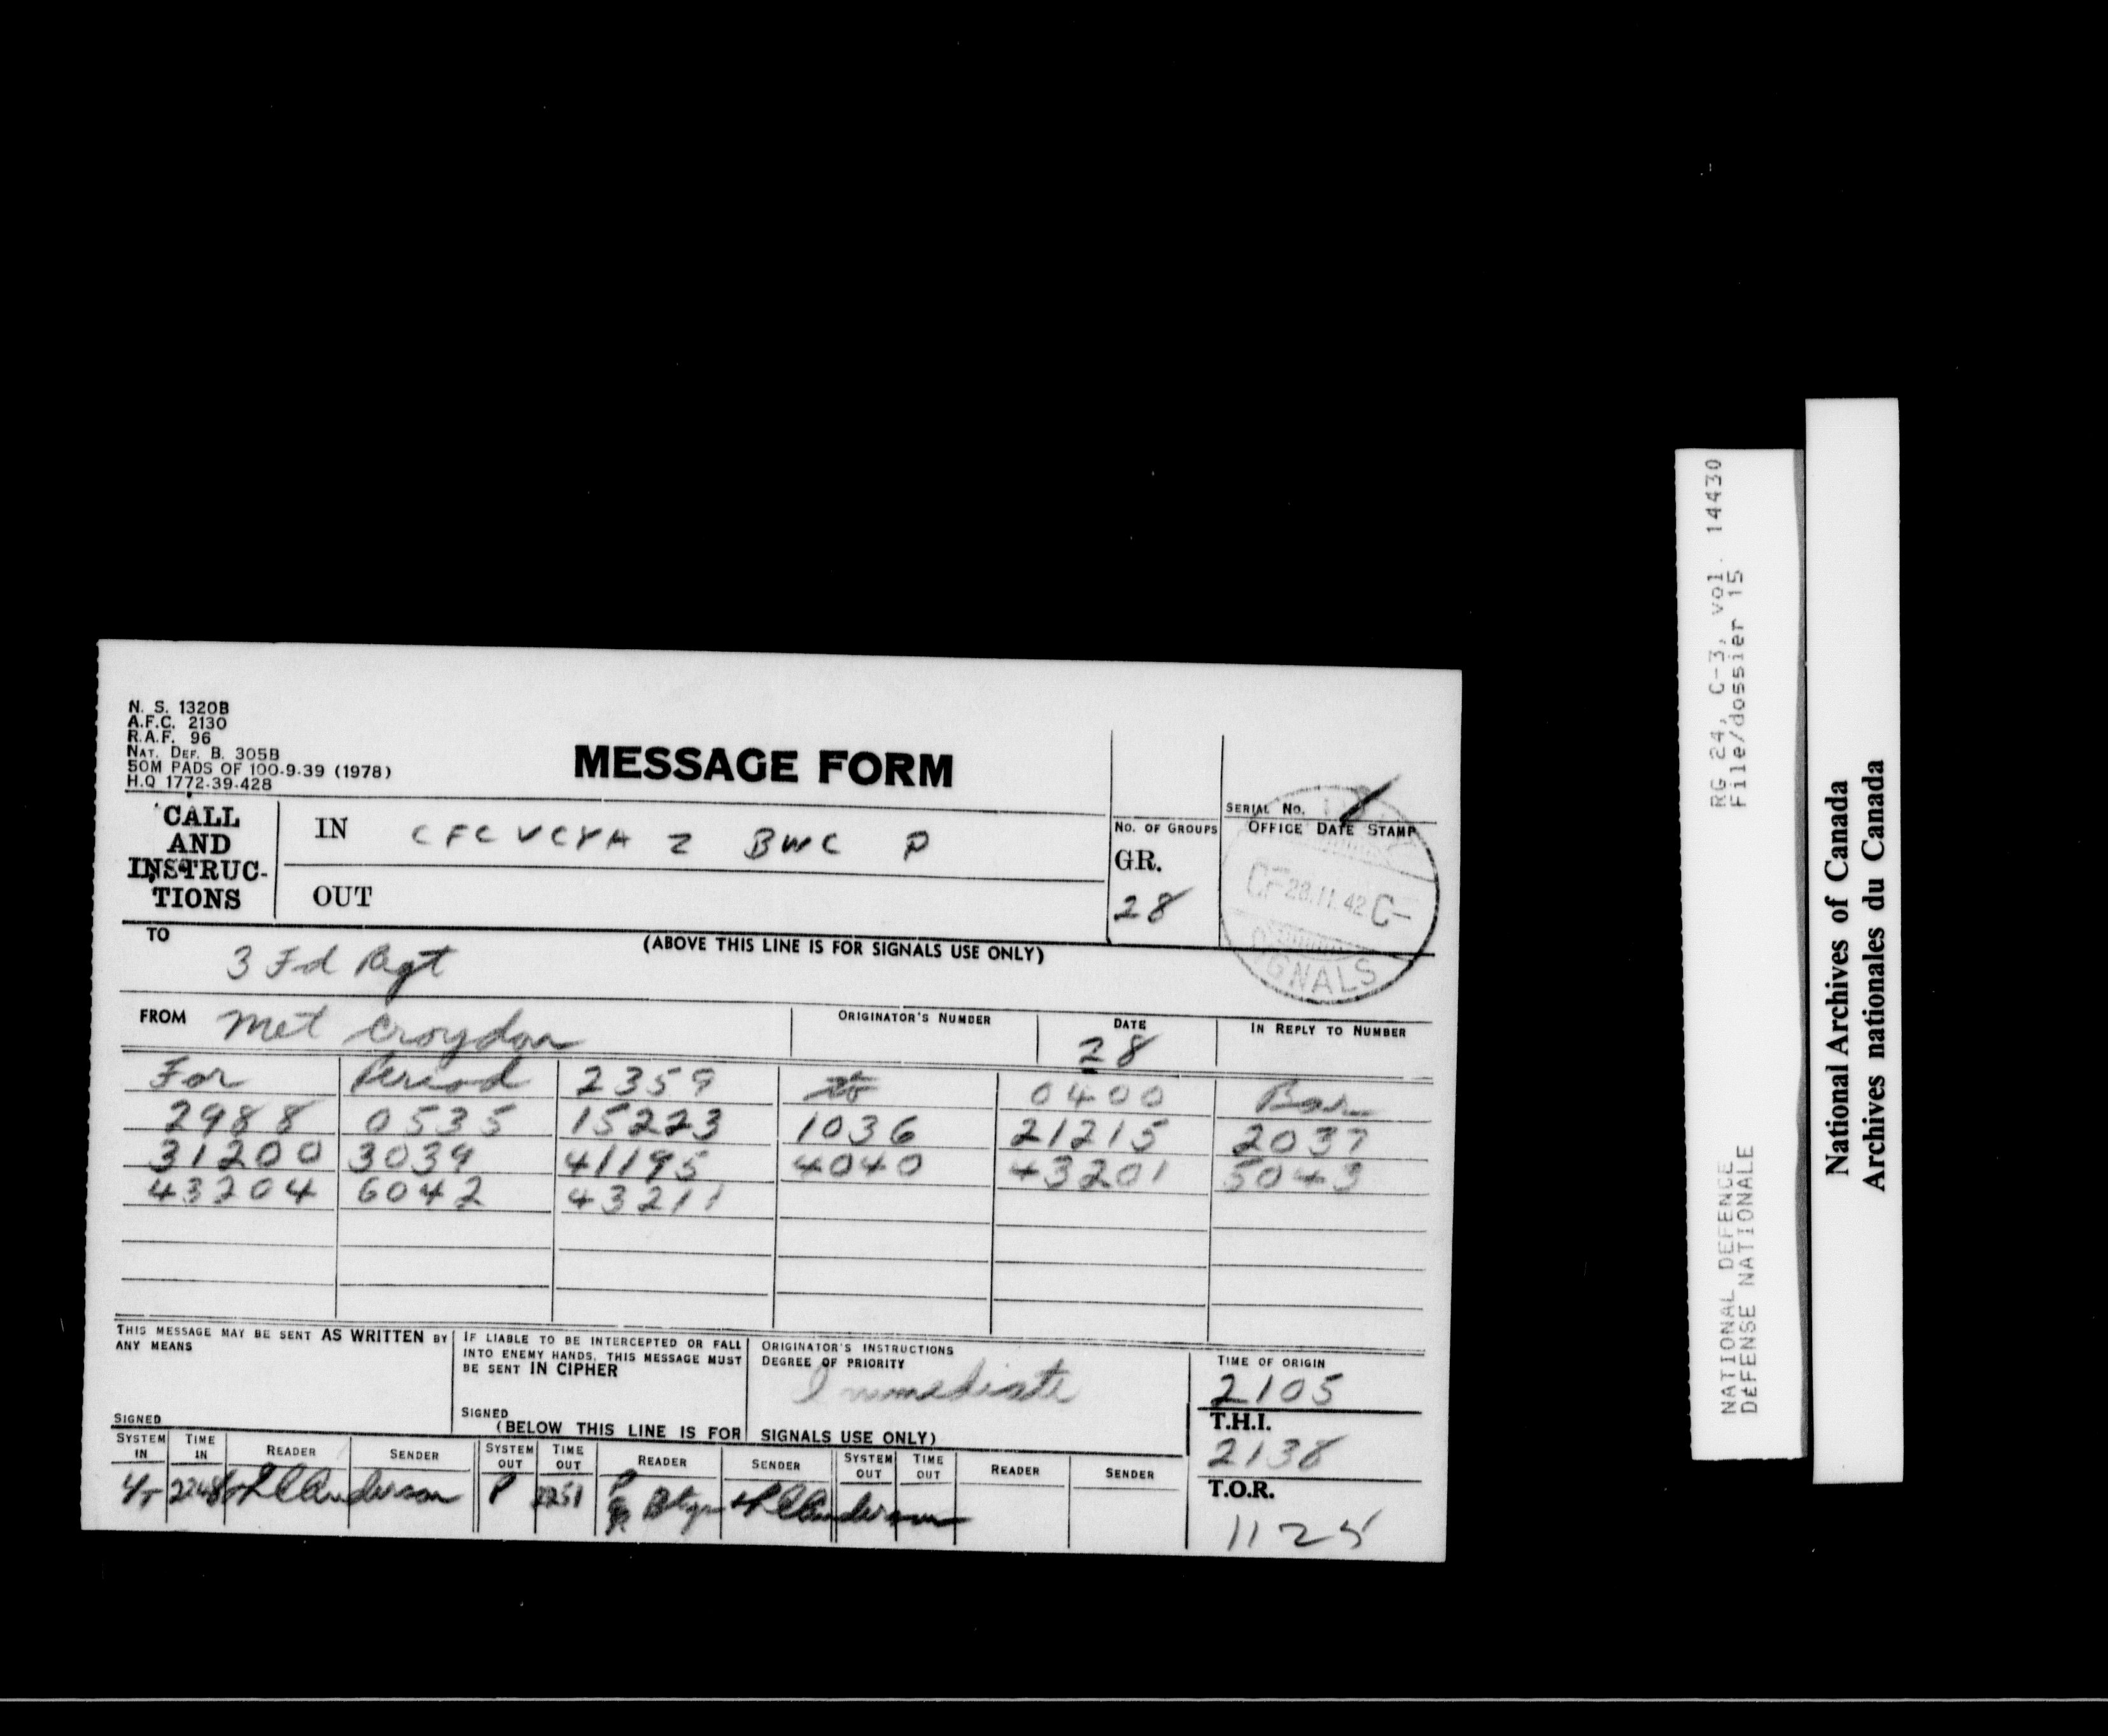 N. S. 1320B
A.F.C. 2130
R.A.F. 96
NAT. DEF. B. 305B
50M PADS OF 100-9-39 (1978)
H.Q 1772-39-428
MESSAGE FORM
CALL AND INSTRUC-TIONS
IN CFC V CYA Z BWC P
OUT
NO. OF GROUPS
GR.
28
SERIAL NO.
OFFICE DATE STAMP
CF 28.11.42 C-
SIGNALS
TO 3 Fd Regt
(ABOVE THIS LINE IS FOR SIGNALS USE ONLY)
FROM Met Croydon
ORIGINATOR'S NUMBER
DATE 28
IN REPLY TO NUMBER
For Period 2359 to 0400 Bar
2988 0535 15223 1036 21215 2037
31200 3039 41195 4040 43201 5043
43204 6042 43211
THIS MESSAGE MAY BE SENT AS WRITTEN BY ANY MEANS
SIGNED
IF LIABLE TO BE INTERCEPTED OR FALL
INTO ENEMY HANDS, THIS MESSAGE MUST
BE SENT IN CIPHER
SIGNED
ORIGINATOR'S INSTRUCTIONS
DEGREE OF PRIORITY
Immediate
TIME OF ORIGIN
2105
T.H.I.
2138
T.O.R.
1125
(BELOW THIS LINE IS FOR SIGNALS USE ONLY)
SYSTEM IN TIME IN READER SENDER SYSTEM OUT TIME OUT READER SENDER SYSTEM OUT TIME OUT READER SENDER
2248 Anderson P 2251 Anderson
RG 24, C-3, vol. 14430
File/dossier 15
NATIONAL DEFENCE
DÉFENSE NATIONALE
National Archives of Canada
Archives nationales du Canada